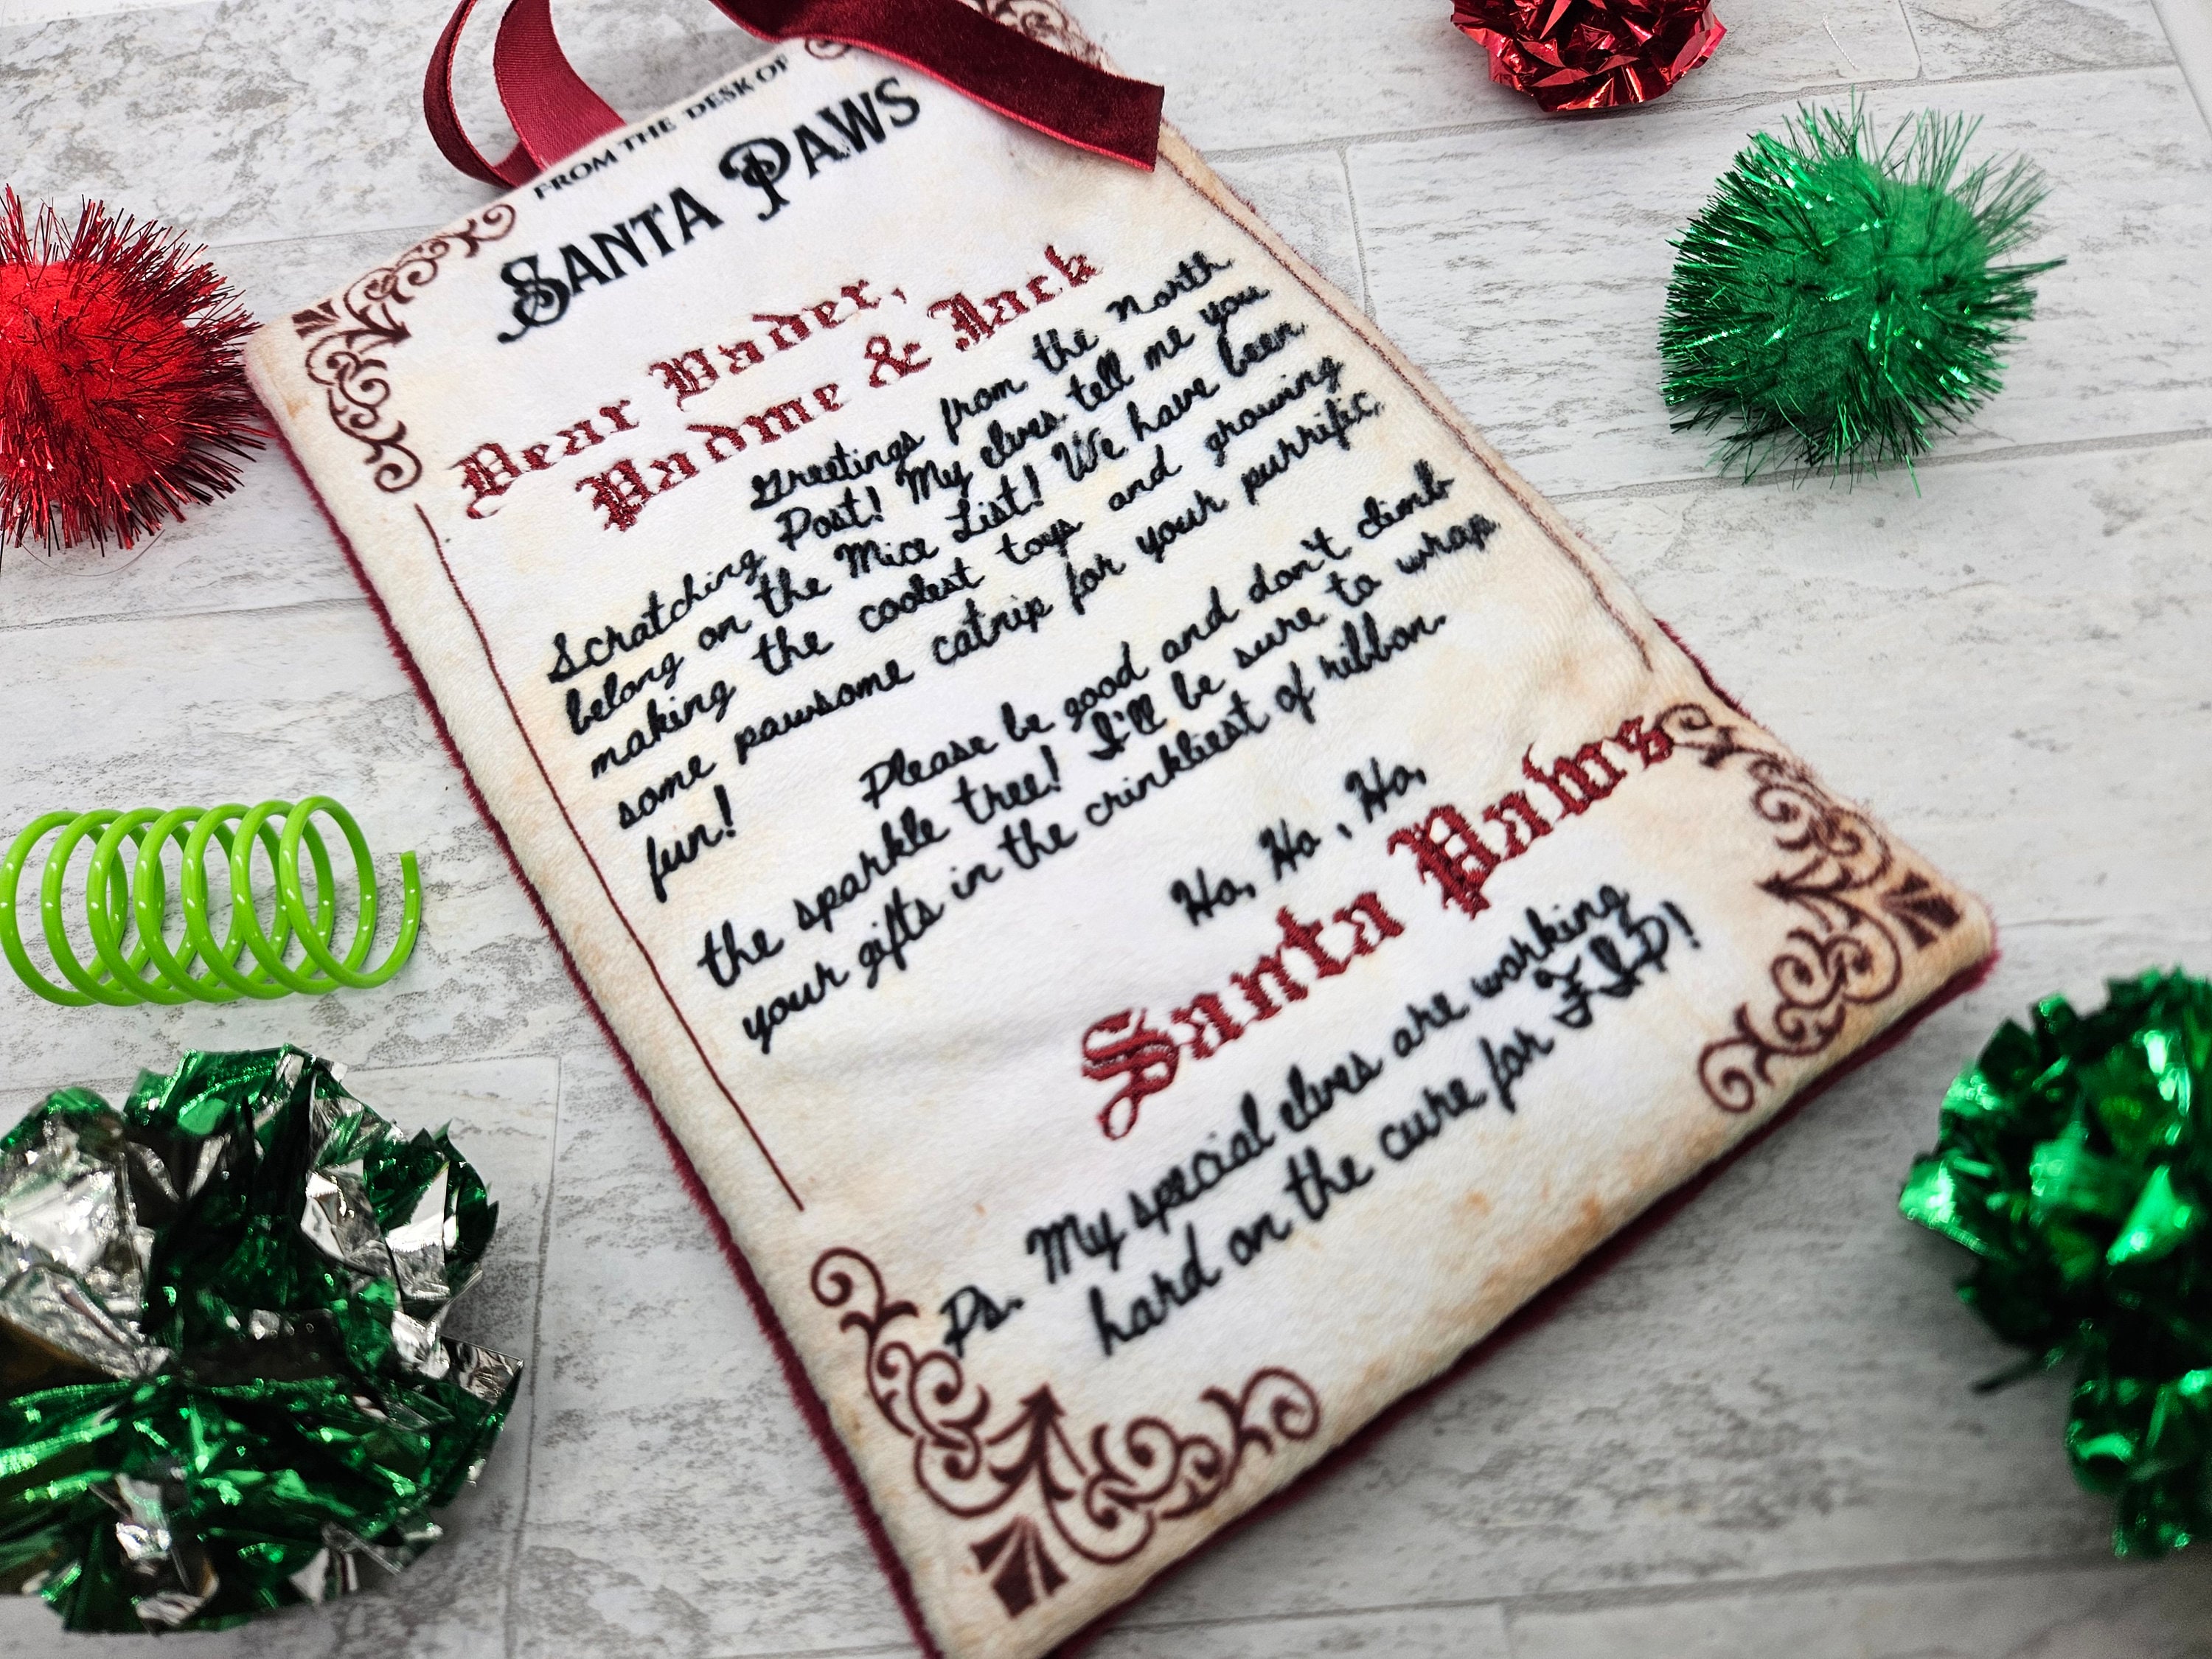 FROM THE DESK OF
SANTA PAWS
Dear Vader,
Padme & Jack
Greetings from the North
Scratching Post! My elves tell me you
belong on the Mice List! We have been
making the coolest toys and growing
some pawsome catnip for your purrific
fun!
Please be good and don't climb
the sparkle tree! I'll be sure to wrap
your gifts in the crinkliest of ribbon.
Ho, Ho, Ho,
Santa Paws
Ps. My special elves are working
hard on the cure for FIP!